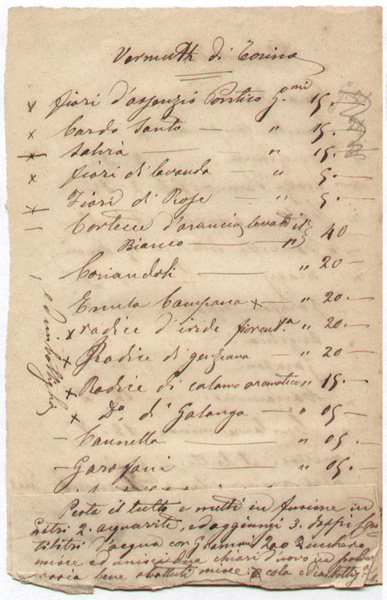 Vermuth di Torino
x fiori d'assenzio Pontico G.mi 15.
x Cardo Santo — " 15.
x Salvia — " 15.
x fiori di lavanda — " 5.
x Fiori di Rose — " 5.
Cortecce d'arancio levati il
Bianco — " 40
Coriandoli — " 20 —
Enula Campana x — " 20 —
x radice d'iride fiorent.a " 20 —
x Radice di genziana — " 20
x Radice di calamo aromatico " 15.
x D.a di Galanga — " 05 —
— Cannella — " 05 —
— Garofani — " 05.
Pesta il tutto e metti in fusione in
Litri 2. acquavite, ed aggiungi 3.
d'acqua con Grammi 200 Zucchero
mesce ed unisci due chiari d'uovo in
bene sbattuti mesce e cola